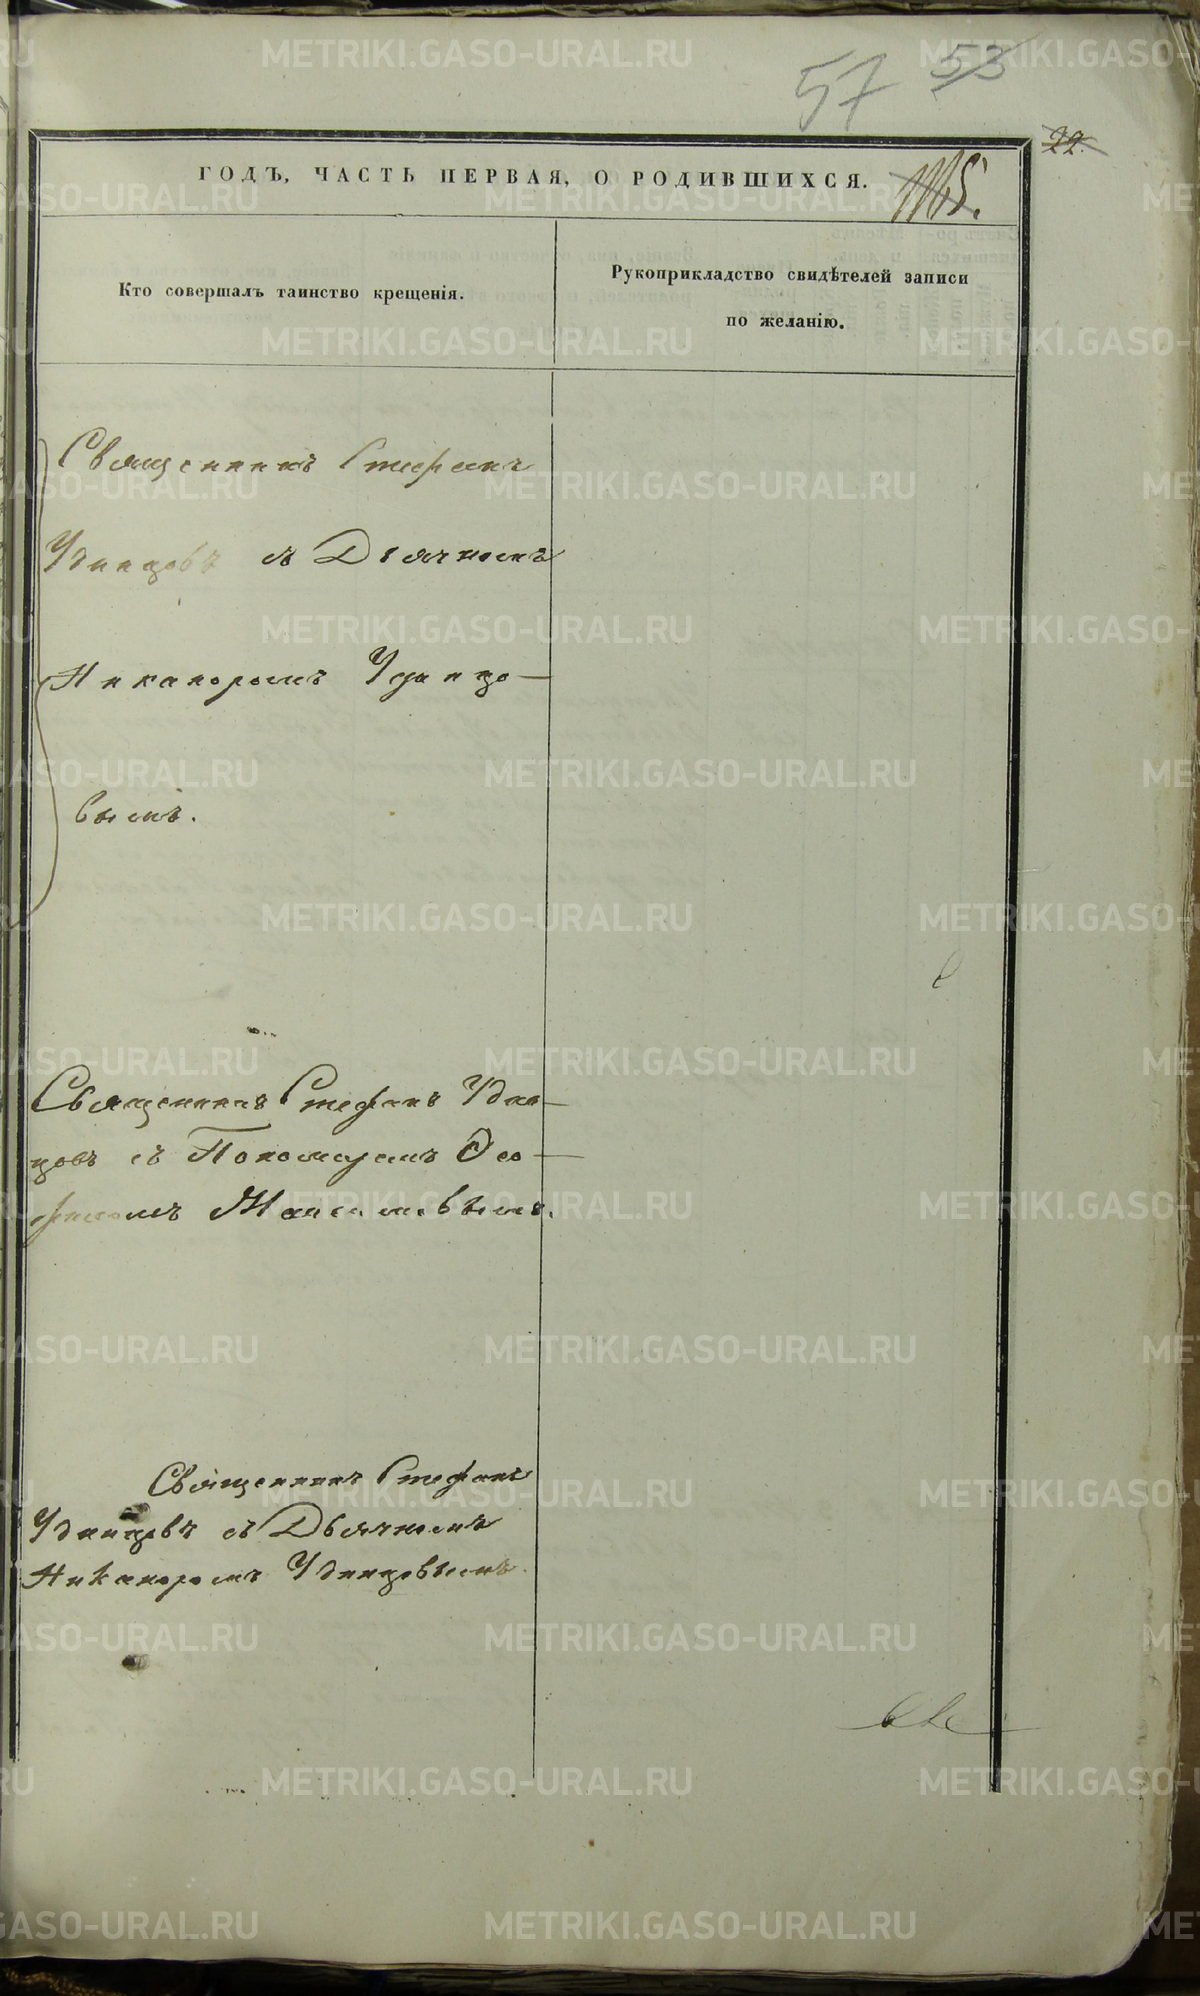 57 53
22.
ГОДЪ, ЧАСТЬ ПЕРВАЯ, О РОДИВШИХСЯ.
Кто совершалъ таинство крещенія.
Рукоприкладство свидѣтелей записи
по желанію.
Священникъ Стефанъ
Удинцовъ съ Дьячкомъ
Никаноромъ Удинцо-
вымъ.
Священникъ Стефанъ Удин-
цовъ съ Пономаремъ
Священникъ Стефанъ
Удинцовъ съ Дьячкомъ
Никаноромъ Удинцовымъ.
METRIKI.GASO-URAL.RU